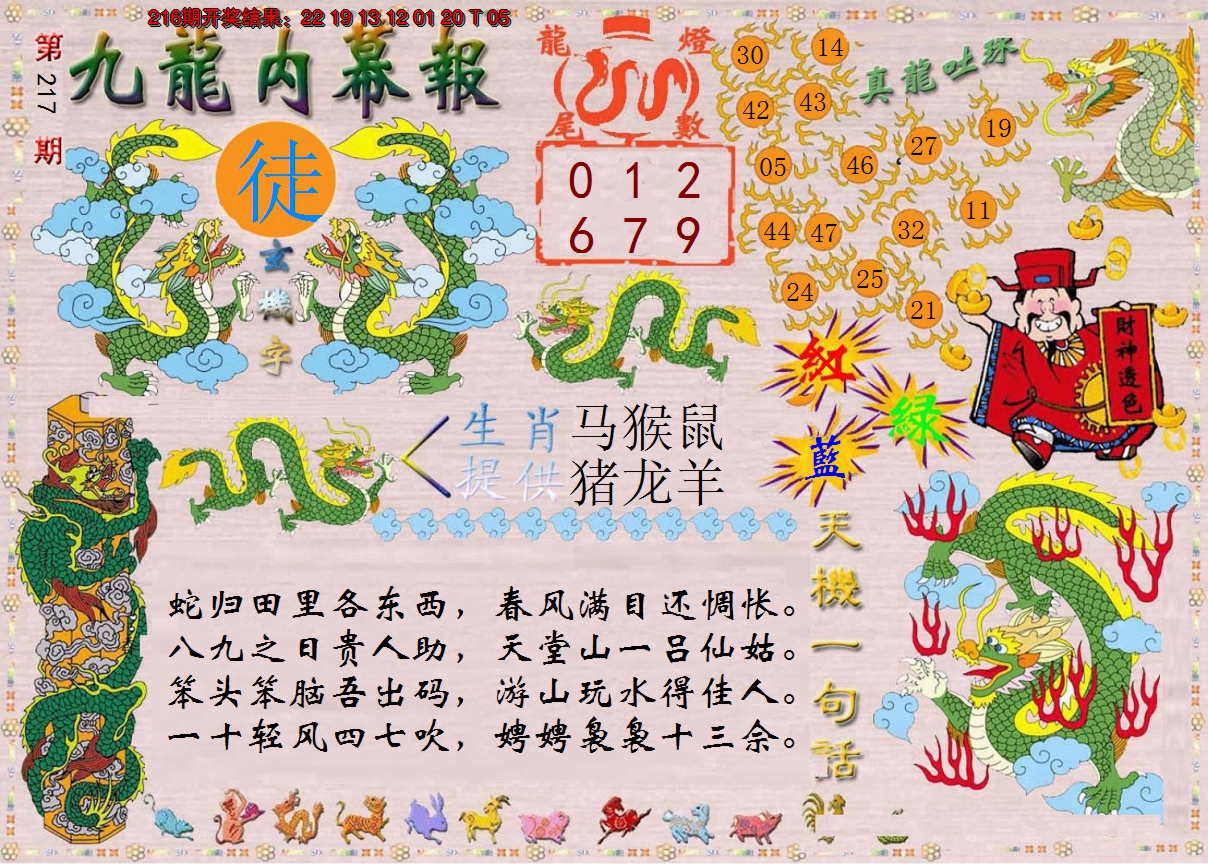 216期开奖结果：22 19 13 12 01 20 T 05
第217期
九龍内幕報
徒
玄機字
龍燈
尾數
0 1 2
6 7 9
真龍吐珠
30
14
42
43
05
46
27
19
44
47
32
11
24
25
21
紅
綠
藍
財神透色
生肖 马猴鼠
提供 猪龙羊
蛇归田里各东西，春风满目还惆怅。
八九之日贵人助，天堂山一吕仙姑。
笨头笨脑吾出码，游山玩水得佳人。
一十轻风四七吹，娉娉袅袅十三余。
天機一句話